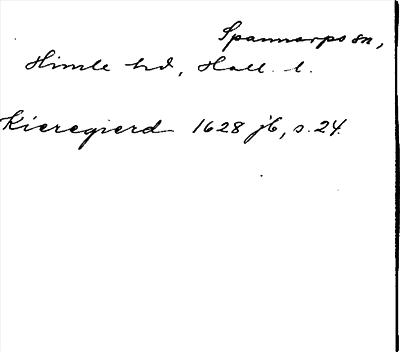 Spannarps sn,
Himle hd, Hall. l.
Kieregierd 1628 jb, s. 24.